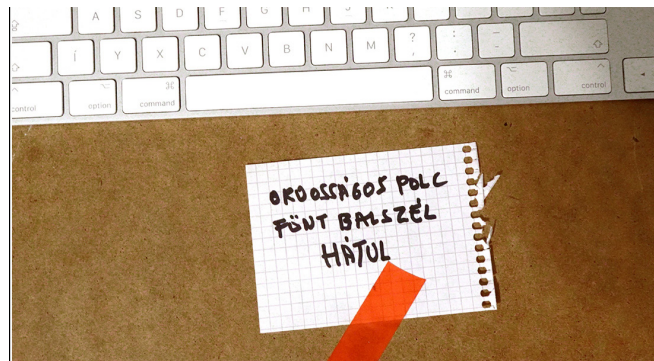 A S D F G H J
Í Y X C V B N M ? , : . - 
control option ⌘ command ⌘ command ⌥ option ^ control
ORDOSSÁGOS POLC
FÖNT BALSZÉL
HÁTUL